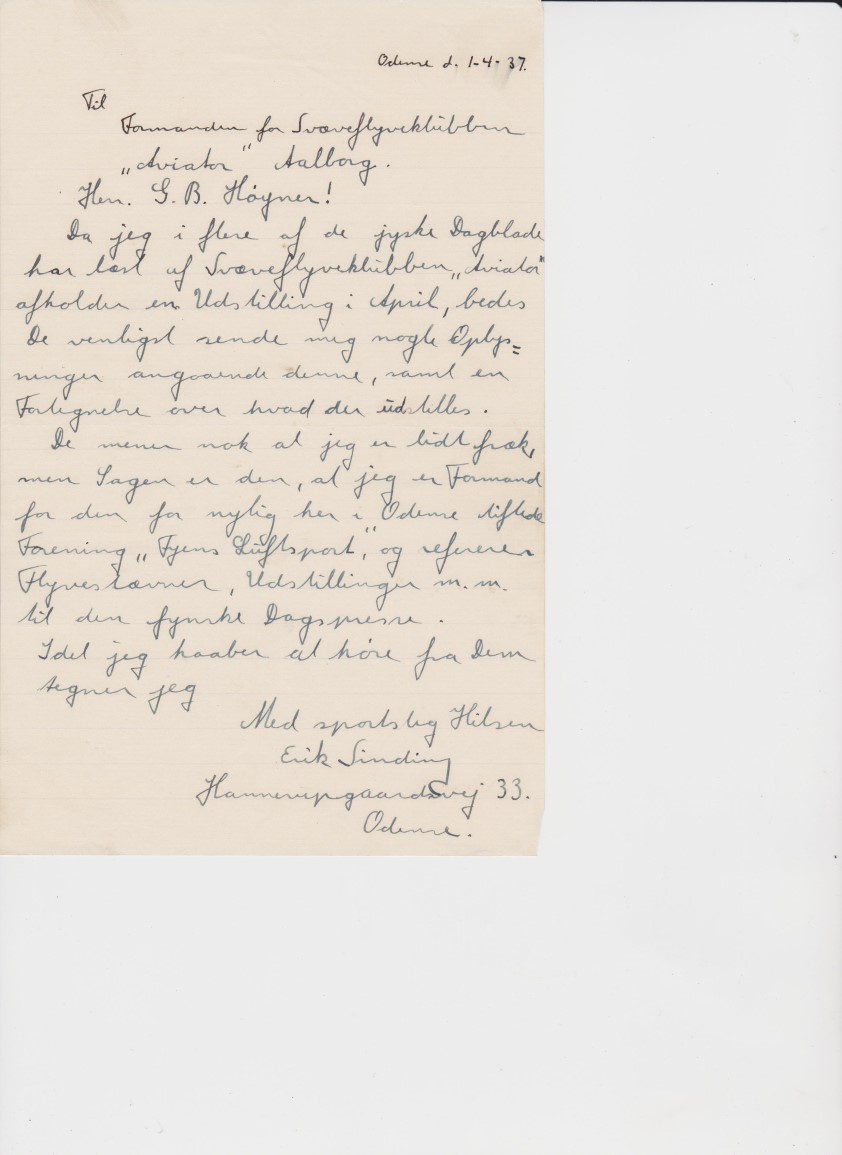 Odense d. 1-4-37.
Til
Formanden for Svæveflyveklubben
„Aviator" Aalborg.
Herr. G. B. Høyner!
Da jeg i flere af de jyske Dagblade
har læst af Svæveflyveklubben „Aviator"
afholder en Udstilling i April, bedes
De venligst sende mig nogle Oplys=
ninger angaaende denne, samt en
Fortegnelse over hvad der udstilles.
De mener nok at jeg er lidt fræk,
men Sagen er den, at jeg er Formand
for den for nylig her i Odense stiftede
Forening „Fyens Luftsport", og refererer
Flyvestævner, Udstillinger m.m.
til den fynske Dagspresse.
Idet jeg haaber at høre fra Dem
tegner jeg
Med sportslig Hilsen
Erik Sinding
Hannerupgaardsvej 33.
Odense.